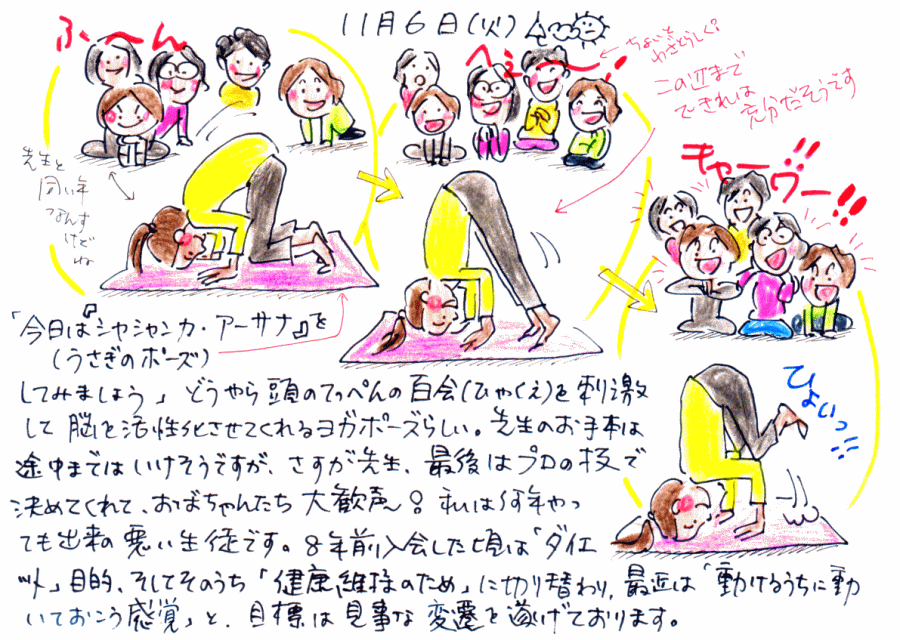 11月6日(火)
ふ〜ん
へぇ〜!
ちょいと
わざとらしく?
この辺まで
できれば
充分だそうです
先生と
同い年
なんす
けどね
キャー!!
ヴー!!
ひょいっ
「今日は『シャシャンカ・アーサナ』を
(うさぎのポーズ)
してみましょう」どうやら頭のてっぺんの百会(ひゃくえ)を刺激
して脳を活性化させてくれるヨガポーズらしい。先生のお手本は
途中まではいけそうですが、さすが先生、最後はプロの技で
決めてくれて、おばちゃんたち大歓声〜。私は8年やっ
ても出来の悪い生徒です。8年前入会した頃は「ダイエ
ット」目的、そしてそのうち「健康維持のため」に切り替わり、最近は「動けるうちに動
いておこう感覚」と、目標は見事な変遷を遂げております。